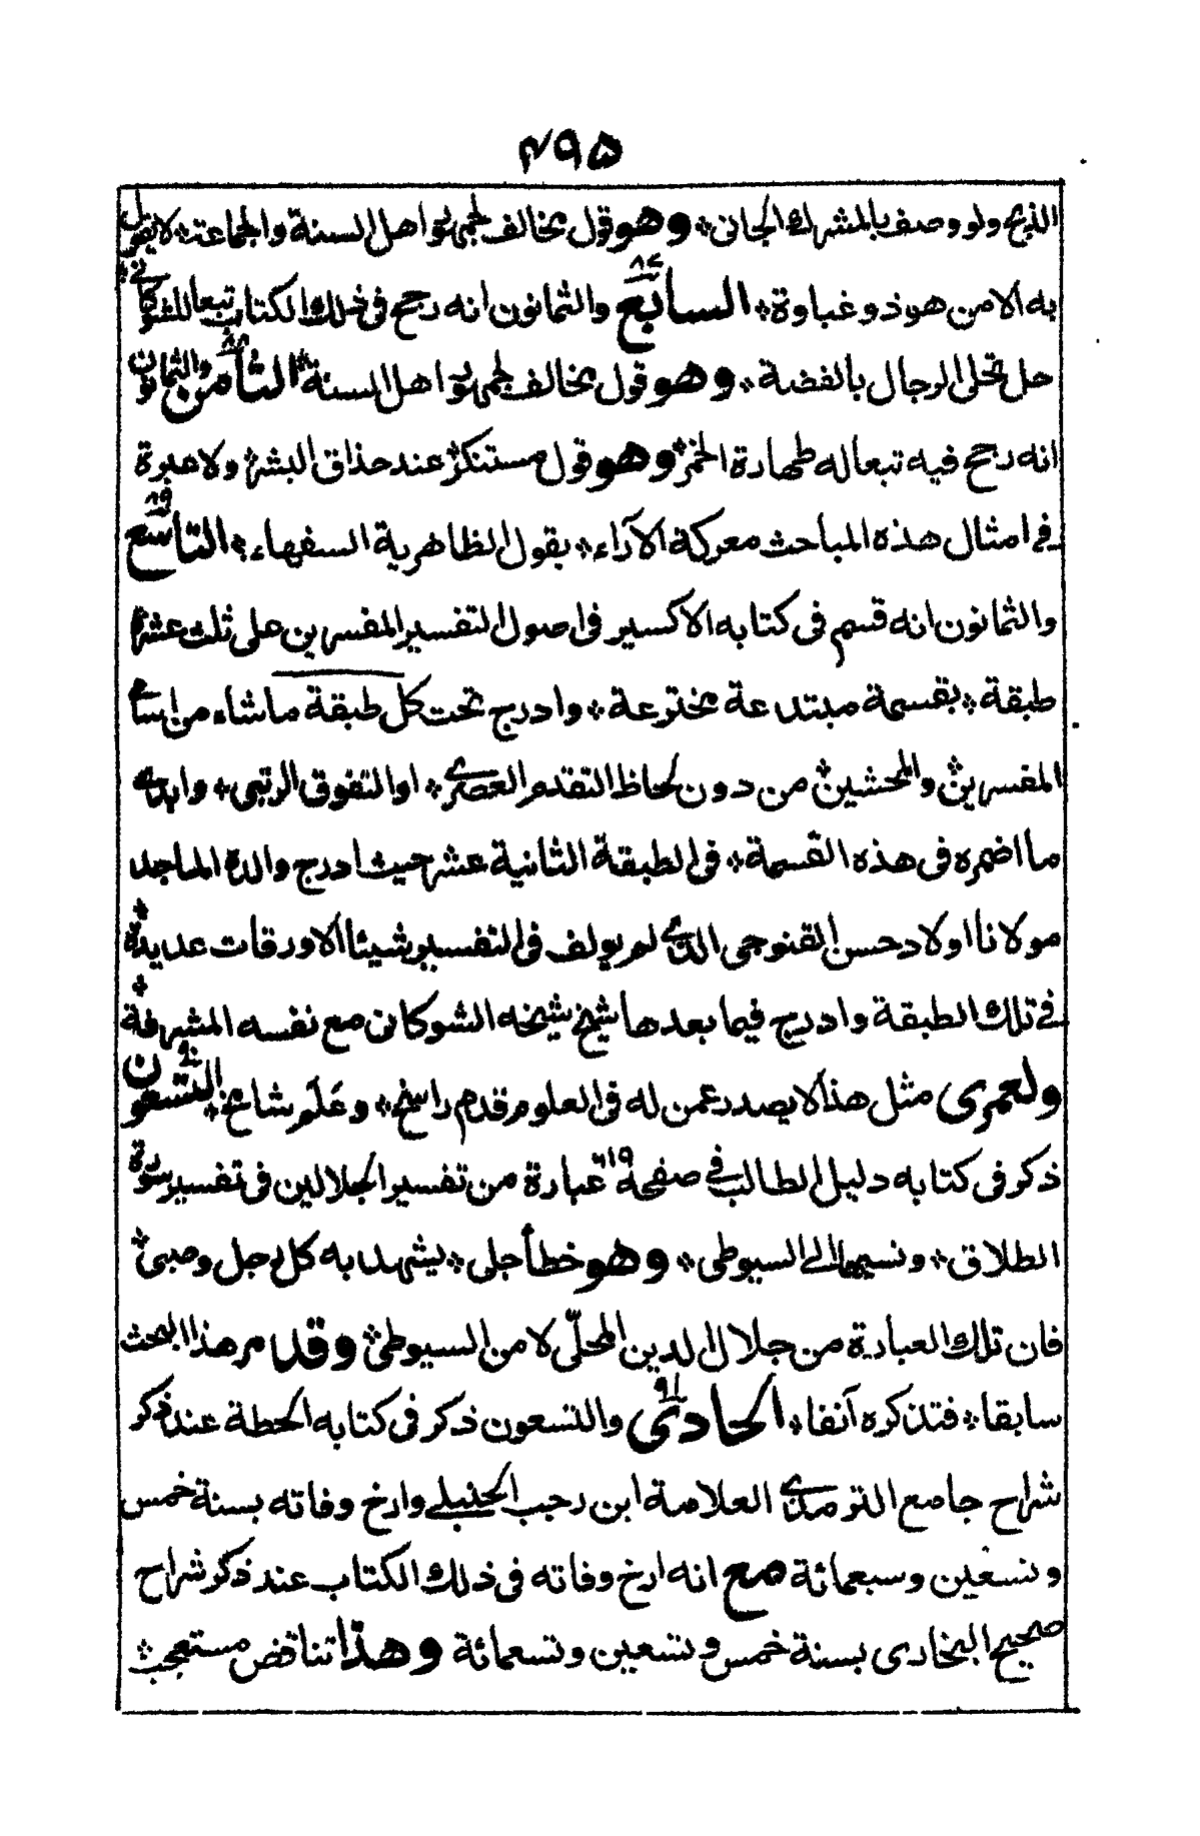 ٤٩٥
الذبح ولو وصف بالمشرك الجانى ؞ وهو قول يخالف لجمهور اهل السنة والجماعة ؞ لا يقول
به الا من هو ذو غباوة ؞ السابع ٨٧ والثمانون انه رجح فى ذلك الكتاب تبعا للشوكانى ؞
حل تحلى الرجال بالفضة ؞ وهو قول يخالف لجمهور اهل السنة ؞ الثامن ٨٨ والثمانون
انه رجح فيه تبعا له طهارة الخمر ؞ وهو قول مستنكر عند حذاق البشر ؞ ولا عبرة
فى امثال هذه المباحث معركة الآراء ؞ بقول الظاهرية السفهاء ؞ التاسع ٨٩
والثمانون انه قسم فى كتابه الاكسير فى اصول التفسير المفسرين على ثلث عشرة
طبقة ؞ بقسمة مبتدعة مخترعة ؞ وادرج تحت كل طبقة ما شاء من اسامى
المفسرين ؞ والمحشين ؞ من دون لحاظ التقدم العصرى ؞ او التفوق الرتبى ؞ وابدى
ما اضمره فى هذه القسمة ؞ فى الطبقة الثانية عشر حيث ادرج والده الماجد
مولانا اولاد حسن القنوجى الذى لم يولف فى التفسير شيئا الا ورقات عديدة ؞
فى تلك الطبقة وادرج فيما بعدها شيخ شيخه الشوكانى مع نفسه المشرفة ؞
ولعمرى مثل هذا لا يصدر عمن له فى العلوم قدم راسخ ؞ وعَلَم شامخ ؞ التسعون ٩٠
ذكر فى كتابه دليل الطالب فى صفحة ٦١٩ عبارة من تفسير الجلالين فى تفسير سورة
الطلاق ؞ ونسبها الى السيوطى ؞ وهو خطأ جلى ؞ يشهد به كل رجل وصبى ؞
فان تلك العبارة من جلال الدين المحلّى لا من السيوطى ؞ وقد مر هذا البحث
سابقا ؞ فتذكره آنفا ؞ الحادى ٩١ والتسعون ذكر فى كتابه الحطة عند ذكر
شراح جامع الترمذى العلامة ابن رجب الحنبلى وارخ وفاته بسنة خمس
وتسعين وسبعمائة مع انه ارخ وفاته فى ذلك الكتاب عند ذكر شراح
صحيح البخارى بسنة خمس وتسعين وتسعمائة وهذا تناقض مستعجب ؞